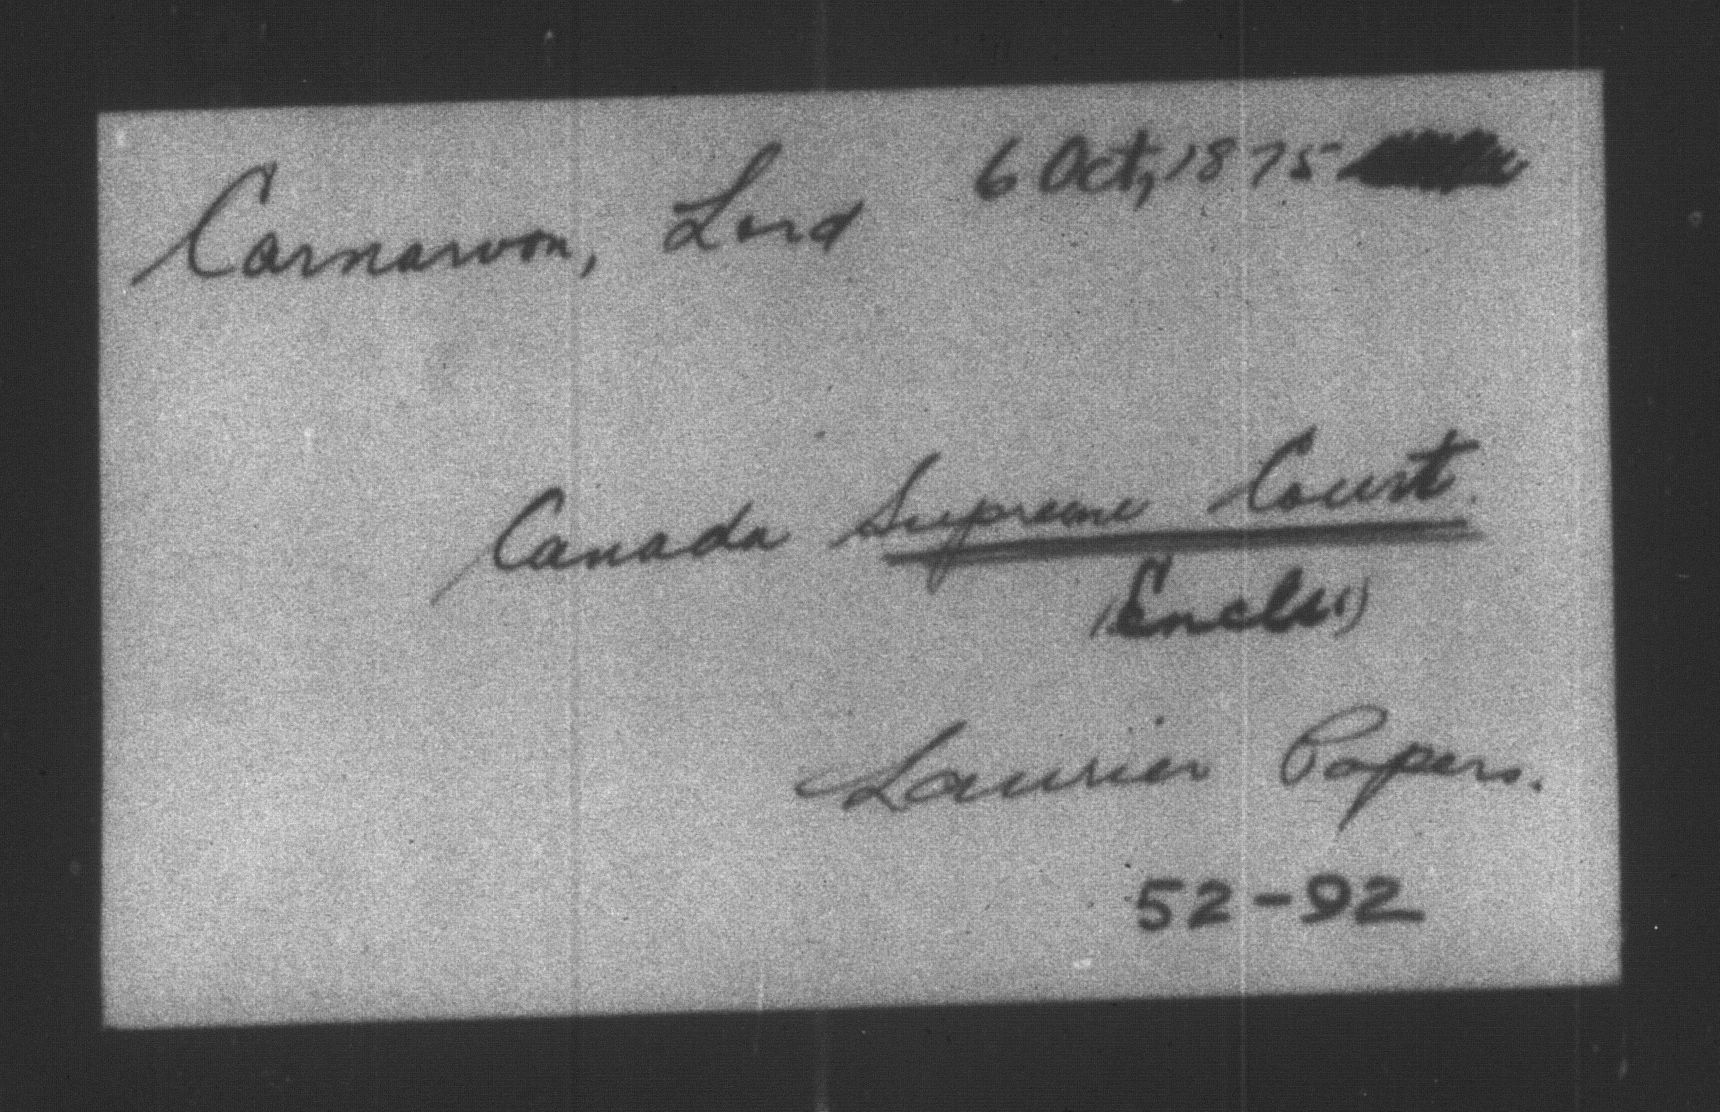 Carnarvon, Lord 6 Oct, 1875
Canada Supreme Court.
(Encls.)
Laurier Papers.
52-92